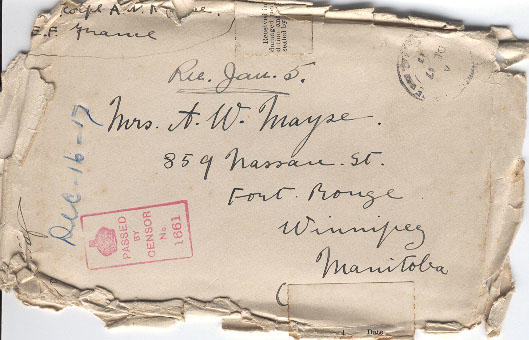 France
Received in
damaged
sealed by
Rec. Jan. 5.
Mrs. A. W. Mayse.
859 Nassau. St.
Fort Rouge
Winnipeg
Manitoba
Dec-16-17
PASSED
BY
CENSOR
No.
1661
Date